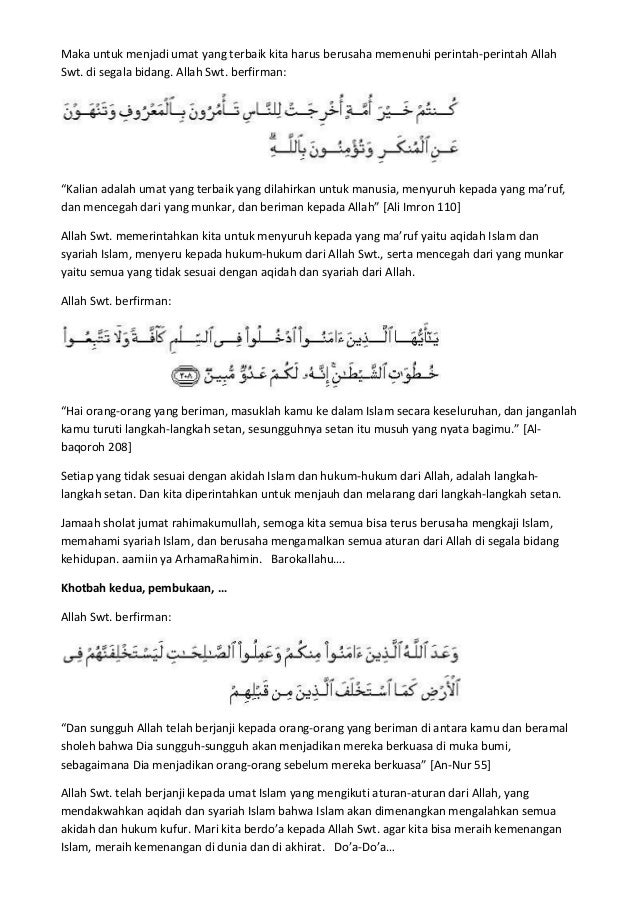 Maka untuk menjadi umat yang terbaik kita harus berusaha memenuhi perintah-perintah Allah
Swt. di segala bidang. Allah Swt. berfirman:
كُنتُمْ خَيْرَ أُمَّةٍ أُخْرِجَتْ لِلنَّاسِ تَأْمُرُونَ بِٱلْمَعْرُوفِ وَتَنْهَوْنَ
عَنِ ٱلْمُنكَرِ وَتُؤْمِنُونَ بِٱللَّهِ ۗ
“Kalian adalah umat yang terbaik yang dilahirkan untuk manusia, menyuruh kepada yang ma’ruf,
dan mencegah dari yang munkar, dan beriman kepada Allah” [Ali Imron 110]
Allah Swt. memerintahkan kita untuk menyuruh kepada yang ma’ruf yaitu aqidah Islam dan
syariah Islam, menyeru kepada hukum-hukum dari Allah Swt., serta mencegah dari yang munkar
yaitu semua yang tidak sesuai dengan aqidah dan syariah dari Allah.
Allah Swt. berfirman:
يَـٰٓأَيُّهَا ٱلَّذِينَ ءَامَنُوا۟ ٱدْخُلُوا۟ فِى ٱلسِّلْمِ كَآفَّةً وَلَا تَتَّبِعُوا۟
خُطُوَٰتِ ٱلشَّيْطَـٰنِ ۚ إِنَّهُۥ لَكُمْ عَدُوٌّ مُّبِينٌ ٢٠٨
“Hai orang-orang yang beriman, masuklah kamu ke dalam Islam secara keseluruhan, dan janganlah
kamu turuti langkah-langkah setan, sesungguhnya setan itu musuh yang nyata bagimu.” [Al-
baqoroh 208]
Setiap yang tidak sesuai dengan akidah Islam dan hukum-hukum dari Allah, adalah langkah-
langkah setan. Dan kita diperintahkan untuk menjauh dan melarang dari langkah-langkah setan.
Jamaah sholat jumat rahimakumullah, semoga kita semua bisa terus berusaha mengkaji Islam,
memahami syariah Islam, dan berusaha mengamalkan semua aturan dari Allah di segala bidang
kehidupan. aamiin ya ArhamaRahimin. Barokallahu….
Khotbah kedua, pembukaan, …
Allah Swt. berfirman:
وَعَدَ ٱللَّهُ ٱلَّذِينَ ءَامَنُوا۟ مِنكُمْ وَعَمِلُوا۟ ٱلصَّـٰلِحَـٰتِ لَيَسْتَخْلِفَنَّهُمْ فِى
ٱلْأَرْضِ كَمَا ٱسْتَخْلَفَ ٱلَّذِينَ مِن قَبْلِهِمْ
“Dan sungguh Allah telah berjanji kepada orang-orang yang beriman di antara kamu dan beramal
sholeh bahwa Dia sungguh-sungguh akan menjadikan mereka berkuasa di muka bumi,
sebagaimana Dia menjadikan orang-orang sebelum mereka berkuasa” [An-Nur 55]
Allah Swt. telah berjanji kepada umat Islam yang mengikuti aturan-aturan dari Allah, yang
mendakwahkan aqidah dan syariah Islam bahwa Islam akan dimenangkan mengalahkan semua
akidah dan hukum kufur. Mari kita berdo’a kepada Allah Swt. agar kita bisa meraih kemenangan
Islam, meraih kemenangan di dunia dan di akhirat. Do’a-Do’a…